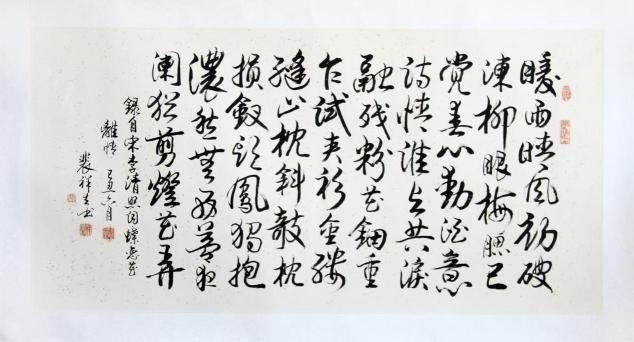 暖雨晴风初破
凍柳眼梅腮已
觉春心動酒意
詩情誰与共淚
融残粉花鈿重
乍試夹衫金縷
縫山枕斜敧枕
損釵头鳳獨抱
濃愁無好夢夜
闌猶剪燈花弄
錄自宋李清照词蝶恋花
離情 己丑六月
裴祥书